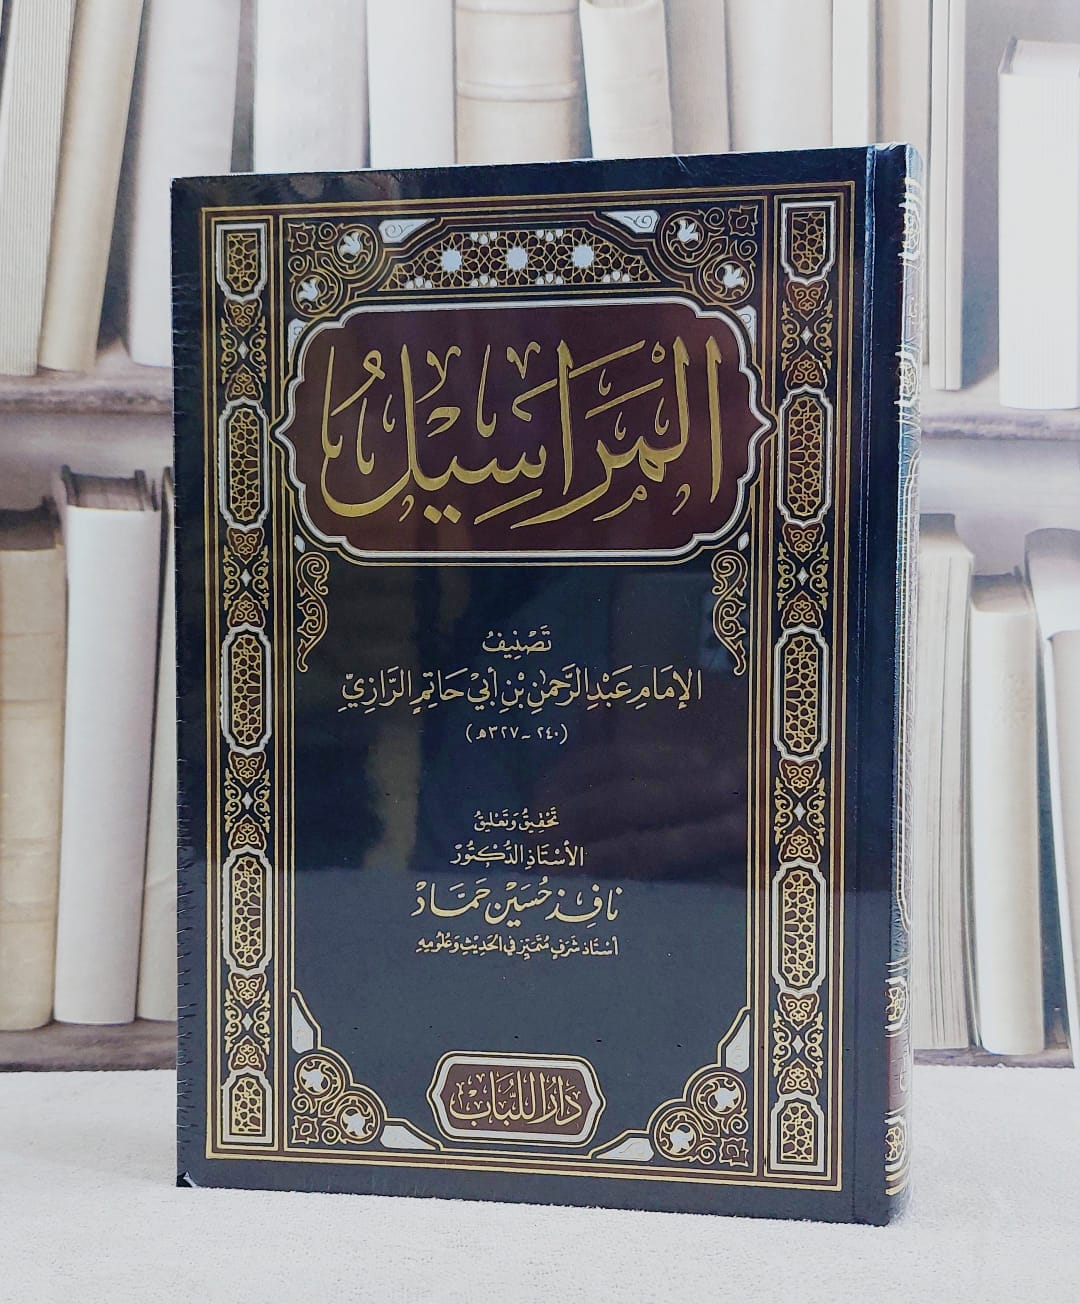 المَرَاسِيلُ
تَصْنِيفُ
الإِمَامِ عَبْدِ الرَّحْمٰنِ بْنِ أَبِي حَاتِمٍ الرَّازِيِّ
(٢٤٠ - ٣٢٧ هـ)
تَحْقِيقُ وَتَعْلِيقُ
الأُسْتَاذِ الدُّكْتُورْ
نَافِذْ حُسَيْن حَمَّادْ
أُسْتَاذ شَرَفٍ مُتَمَيِّز فِي الحَدِيْثِ وَعُلُومِهِ
دَارُ اللُّبَابْ